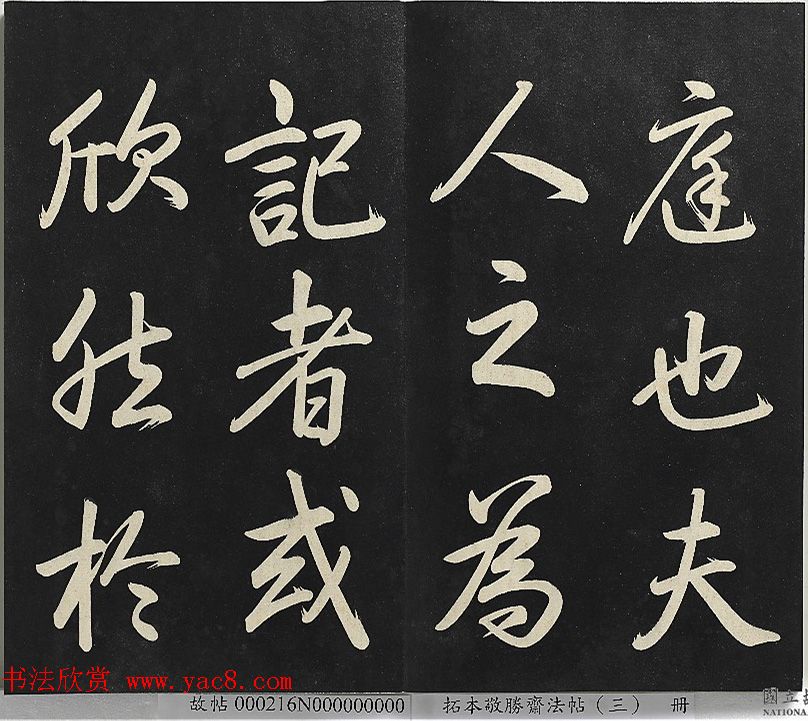 庭也夫
人之為
記者或
欣然於
书法欣赏 www.yac8.com
故帖 000216N000000000
拓本敬勝齋法帖（三） 册
國立
NATIONA